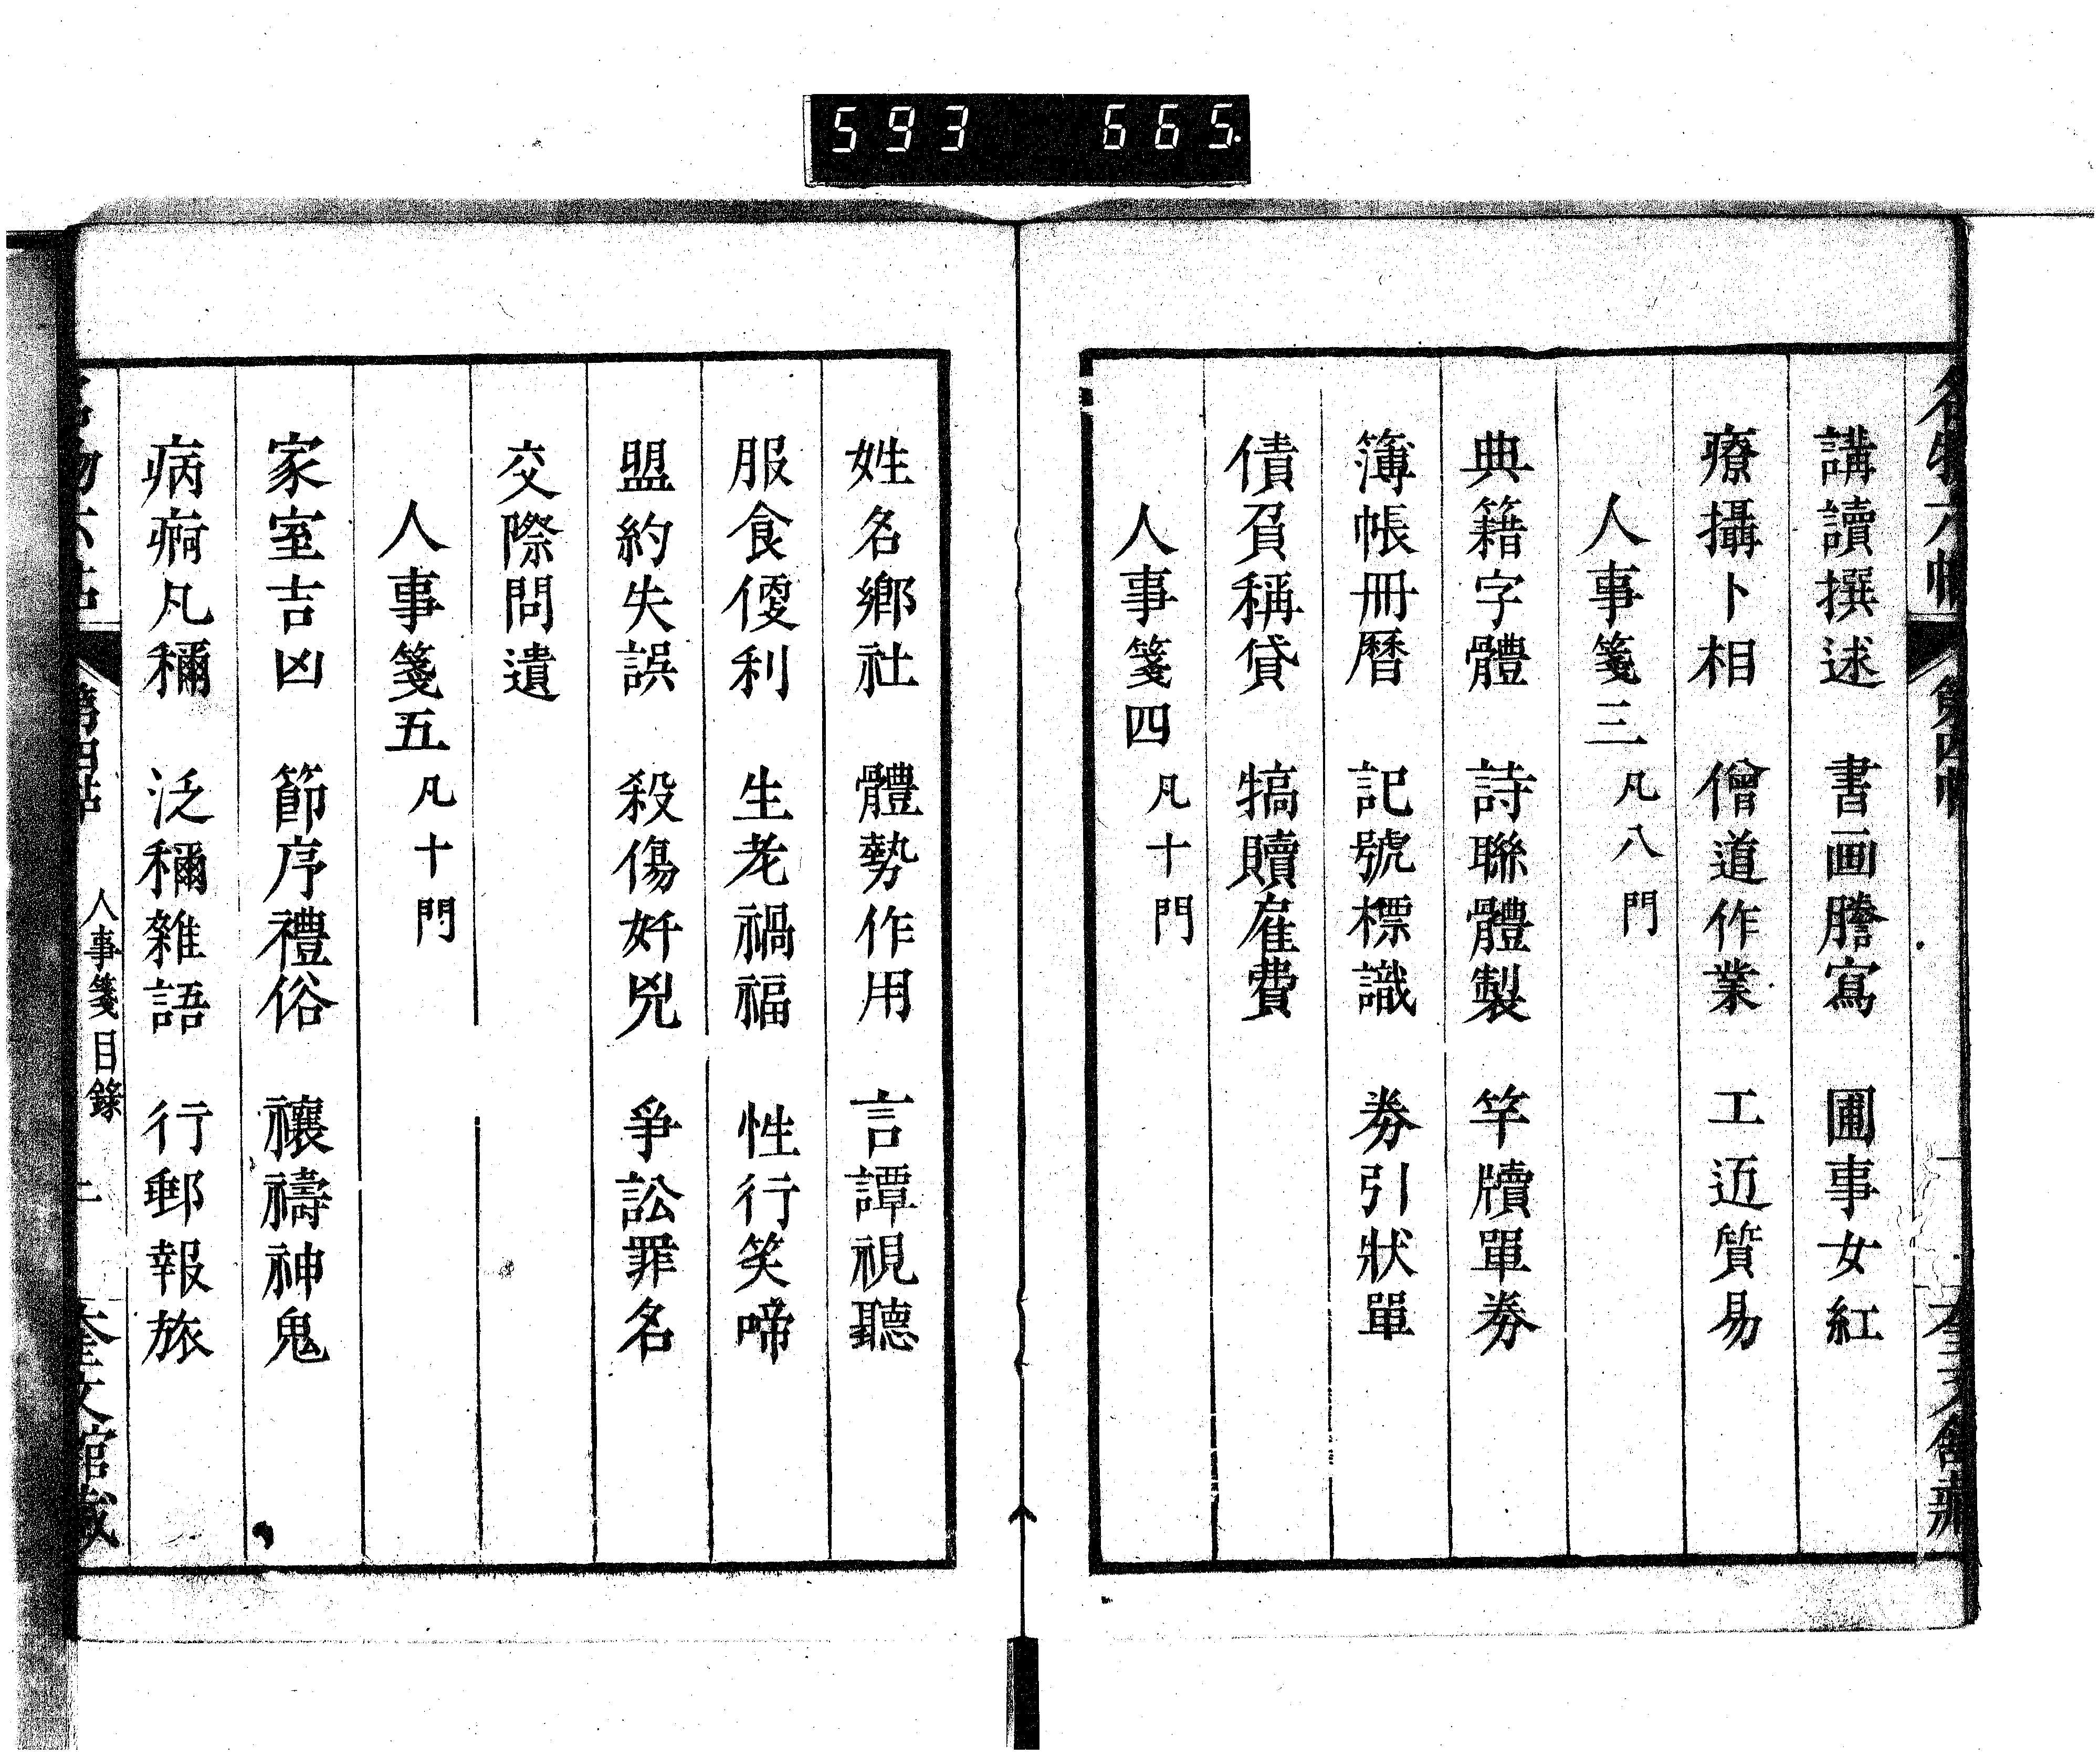 593 665.
名物六帖 第四帖 一 奎文館藏
講讀撰述 書画謄寫 圃事女紅
療攝卜相 僧道作業 工近質易
人事箋三 凡八門
典籍字體 詩聯體製 竿牘單券
簿帳冊曆 記號標識 券引狀單
債負稱貸 犒贖雇費
人事箋四 凡十門
姓名鄉社 體勢作用 言譚視聽
服食優利 生老禍福 性行笑啼
盟約失誤 殺傷奸兇 爭訟罪名
交際問遺
人事箋五 凡十門
家室吉凶 節序禮俗 禳禱神鬼
病痾凡稱 泛稱雜語 行郵報旅
名物六帖 第四帖 人事箋目錄 二 奎文館藏